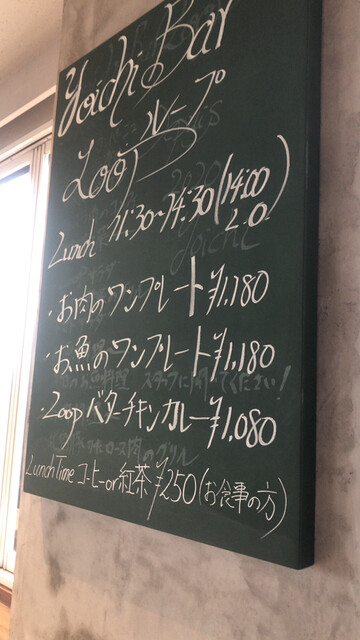 Yoichi Bar
Loop ループ
Lunch 11:30〜14:30(14:00 L.O)
・お肉のワンプレート ¥1,180
・お魚のワンプレート ¥1,180
・Loop バターチキンカレー ¥1,080
Lunch Time コーヒー or 紅茶 ¥250(お食事の方)